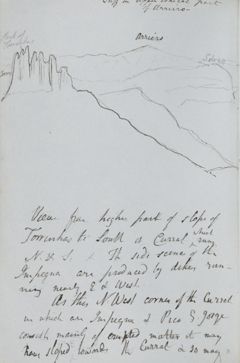 Tuff in upper central part
of Arriero
Arriero
View from higher part of slope of
Torrinhas to South of Curral
N. & S. The side scene of the
Impegna are produced by dikes run-
ning nearly E & West.
As this N West corner of the Curral
in which are Impegna & Pico S. Jorge
consists mainly of erupted matter it may
have sloped towards the Curral &